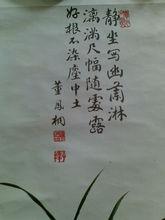 静坐写幽兰淋
漓满尺幅随处露
好根不染尘中土
董凤桐